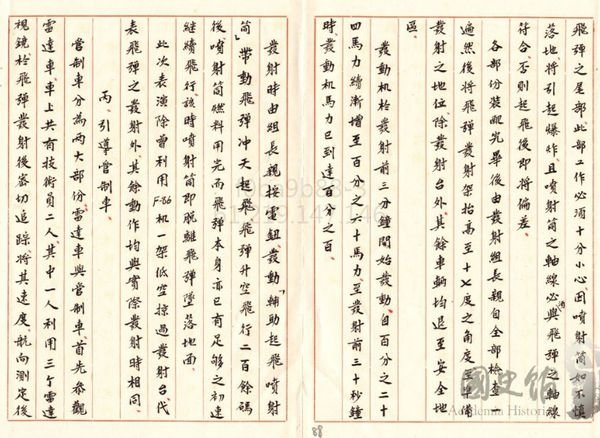 飛彈之尾部此部工作必須十分小心因噴射筒如不慎
落地將引起爆炸且噴射筒之軸線必與飛彈之軸線
符合否則起飛後即將偏差
各部份裝配完畢後由發射組長親自全部檢查
一遍然後將飛彈發射架抬高至十七度之角度至準備
發射之地位除發射台外其餘車輛均退至安全地
區
發動机於發射前三分鐘開始發動自百分之二十
四馬力續漸增至百分之六十馬力至發射前三十秒鐘
時發動机馬力已到達百分之百
發射時由組長親按電鈕發動輔助起飛噴射
筒帶動飛彈冲天起飛飛彈升空飛行二百餘碼
後噴射筒燃料用完而飛彈本身亦已有足夠之初速
繼續飛行該時噴射筒即脫離飛彈墜落地面
此次表演除曾利用F-86机一架低空掠過發射台代
表飛彈之發射外其餘動作均與實際發射時相同
丙、引導管制車
管制車分為兩大部份雷達車與管制車首先參觀
雷達車車上共有技術員二人其中一人利用三個雷達
視鏡於飛彈發射後密切追踪將其速度、航向測定後
88
國史館
Academia Historica